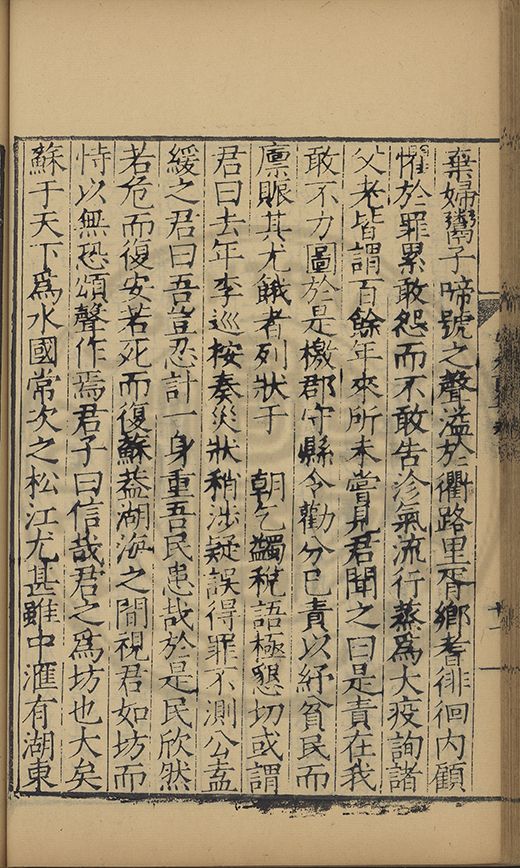 棄婦鬻子啼號之聲溢於衢路里胥鄉耆徘徊内顧
懼於罪累敢怨而不敢告沴氣流行蒸爲大疫詢諸
父老皆謂百餘年來所未嘗見君聞之曰是責在我
敢不力圖於是檄郡守縣令勸分已責以紓貧民而
廪賑其尤餓者列狀于　朝乞蠲稅語極懇切或謂
君曰去年李巡按奏災狀稍涉疑誤得罪不測公盍
緩之君曰吾豈忍計一身重吾民患哉於是民欣然
若危而復安若死而復蘇葢湖海之間視君如坊而
恃以無恐頌聲作焉君子曰信哉君之爲坊也大矣
蘇于天下爲水國常次之松江尤甚雖中滙有湖東